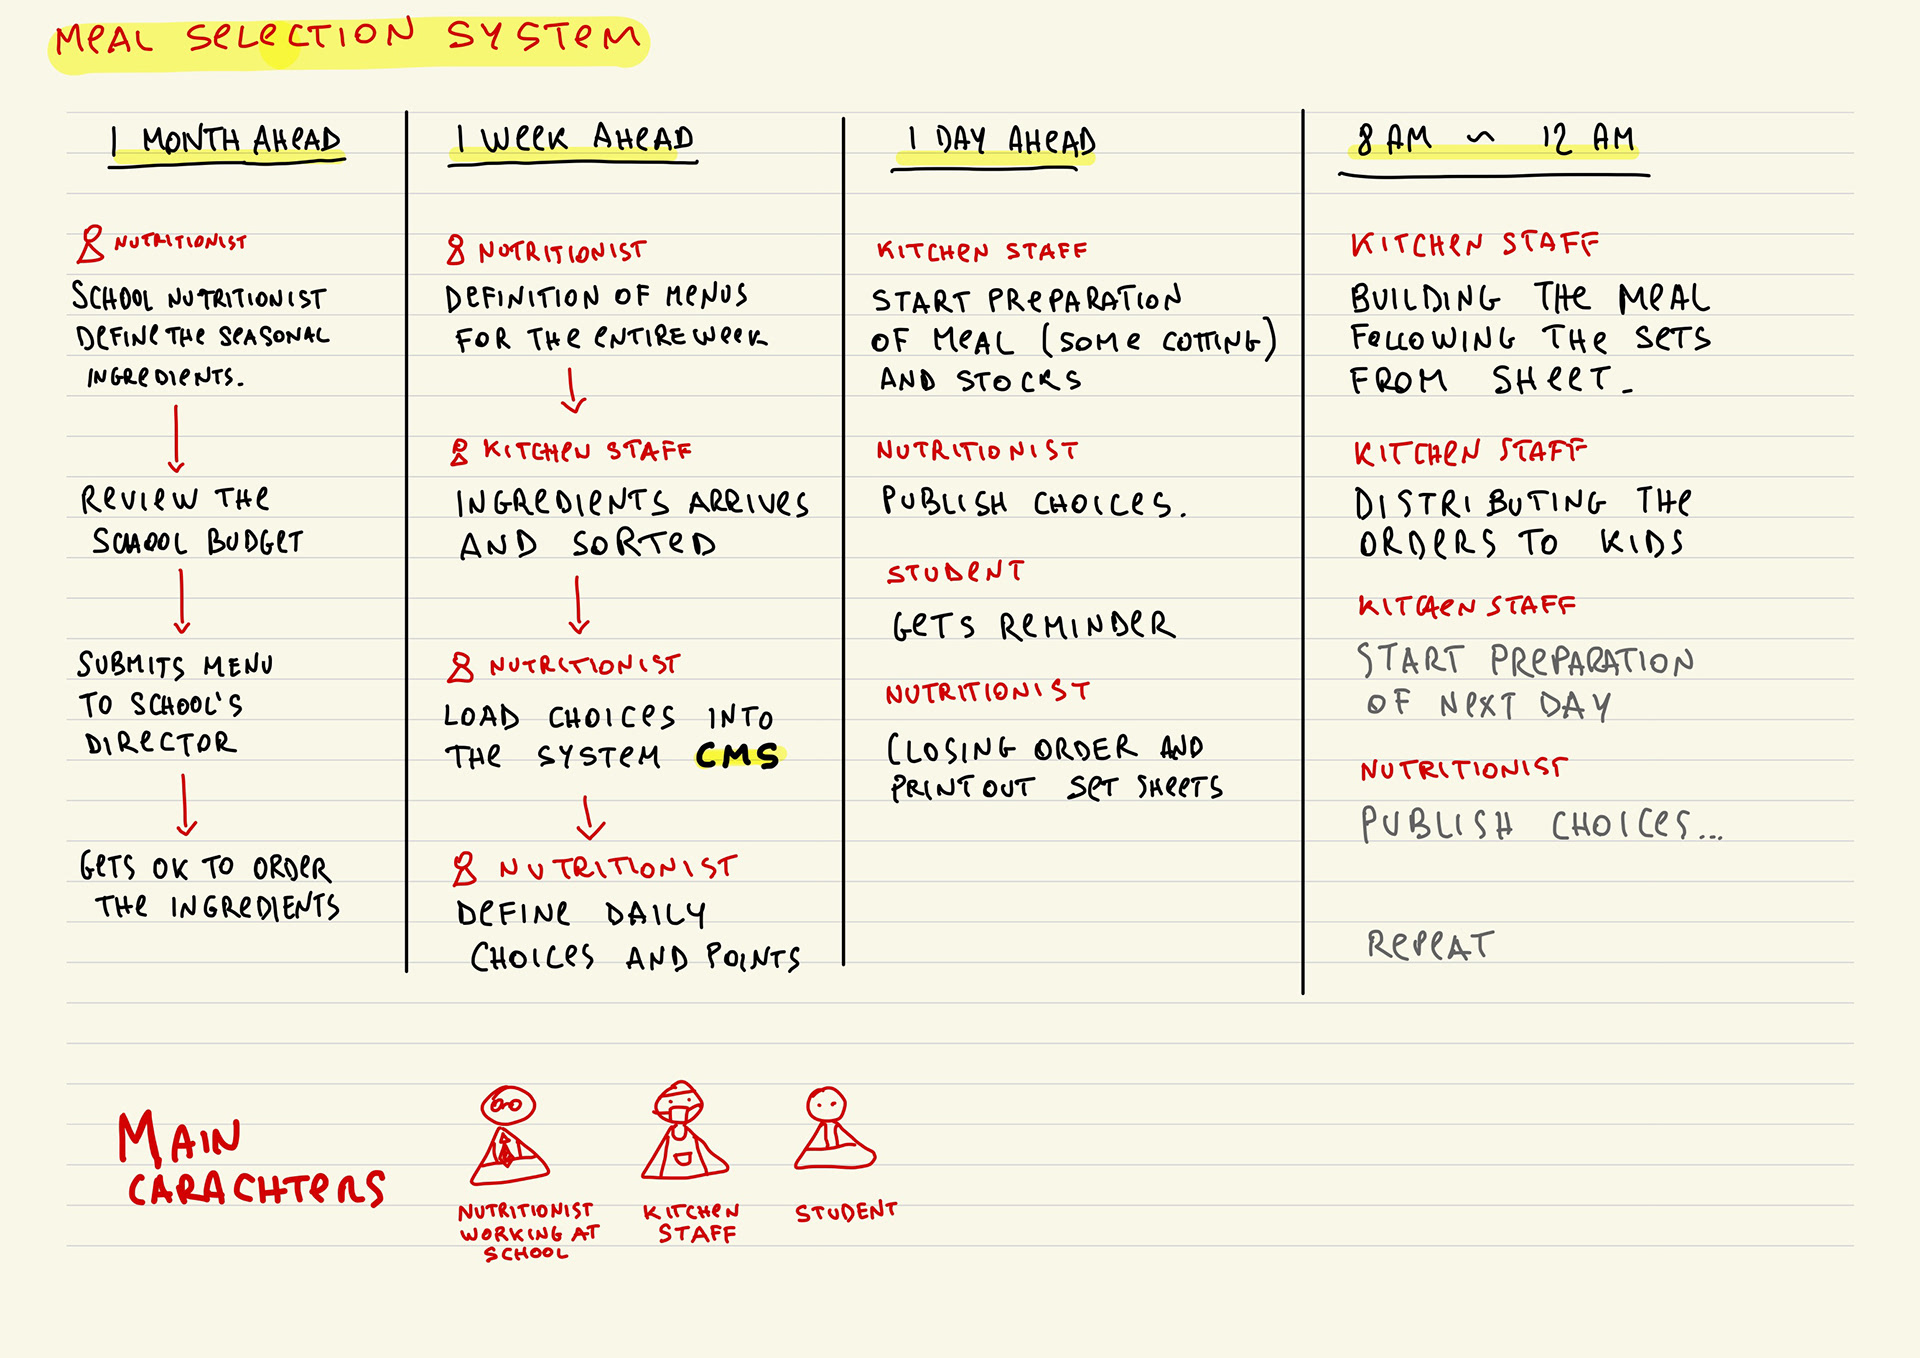 MEAL SELECTION SYSTEM
1 MONTH AHEAD
NUTRITIONIST
SCHOOL NUTRITIONIST
DEFINE THE SEASONAL
INGREDIENTS.
REVIEW THE
SCHOOL BUDGET
SUBMITS MENU
TO SCHOOL'S
DIRECTOR
GETS OK TO ORDER
THE INGREDIENTS
1 WEEK AHEAD
NUTRITIONIST
DEFINITION OF MENUS
FOR THE ENTIRE WEEK
KITCHEN STAFF
INGREDIENTS ARRIVES
AND SORTED
NUTRITIONIST
LOAD CHOICES INTO
THE SYSTEM CMS
NUTRITIONIST
DEFINE DAILY
CHOICES AND POINTS
1 DAY AHEAD
KITCHEN STAFF
START PREPARATION
OF MEAL (SOME CUTTING)
AND STOCKS
NUTRITIONIST
PUBLISH CHOICES.
STUDENT
GETS REMINDER
NUTRITIONIST
CLOSING ORDER AND
PRINT OUT SET SHEETS
8 AM ~ 12 AM
KITCHEN STAFF
BUILDING THE MEAL
FOLLOWING THE SETS
FROM SHEET.
KITCHEN STAFF
DISTRIBUTING THE
ORDERS TO KIDS
KITCHEN STAFF
START PREPARATION
OF NEXT DAY
NUTRITIONIST
PUBLISH CHOICES...
REPEAT
MAIN
CARACHTERS
NUTRITIONIST
WORKING AT
SCHOOL
KITCHEN
STAFF
STUDENT